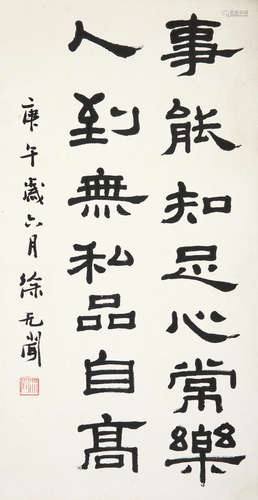 事能知足心常樂
人到無私品自高
庚午歲六月徐无聞